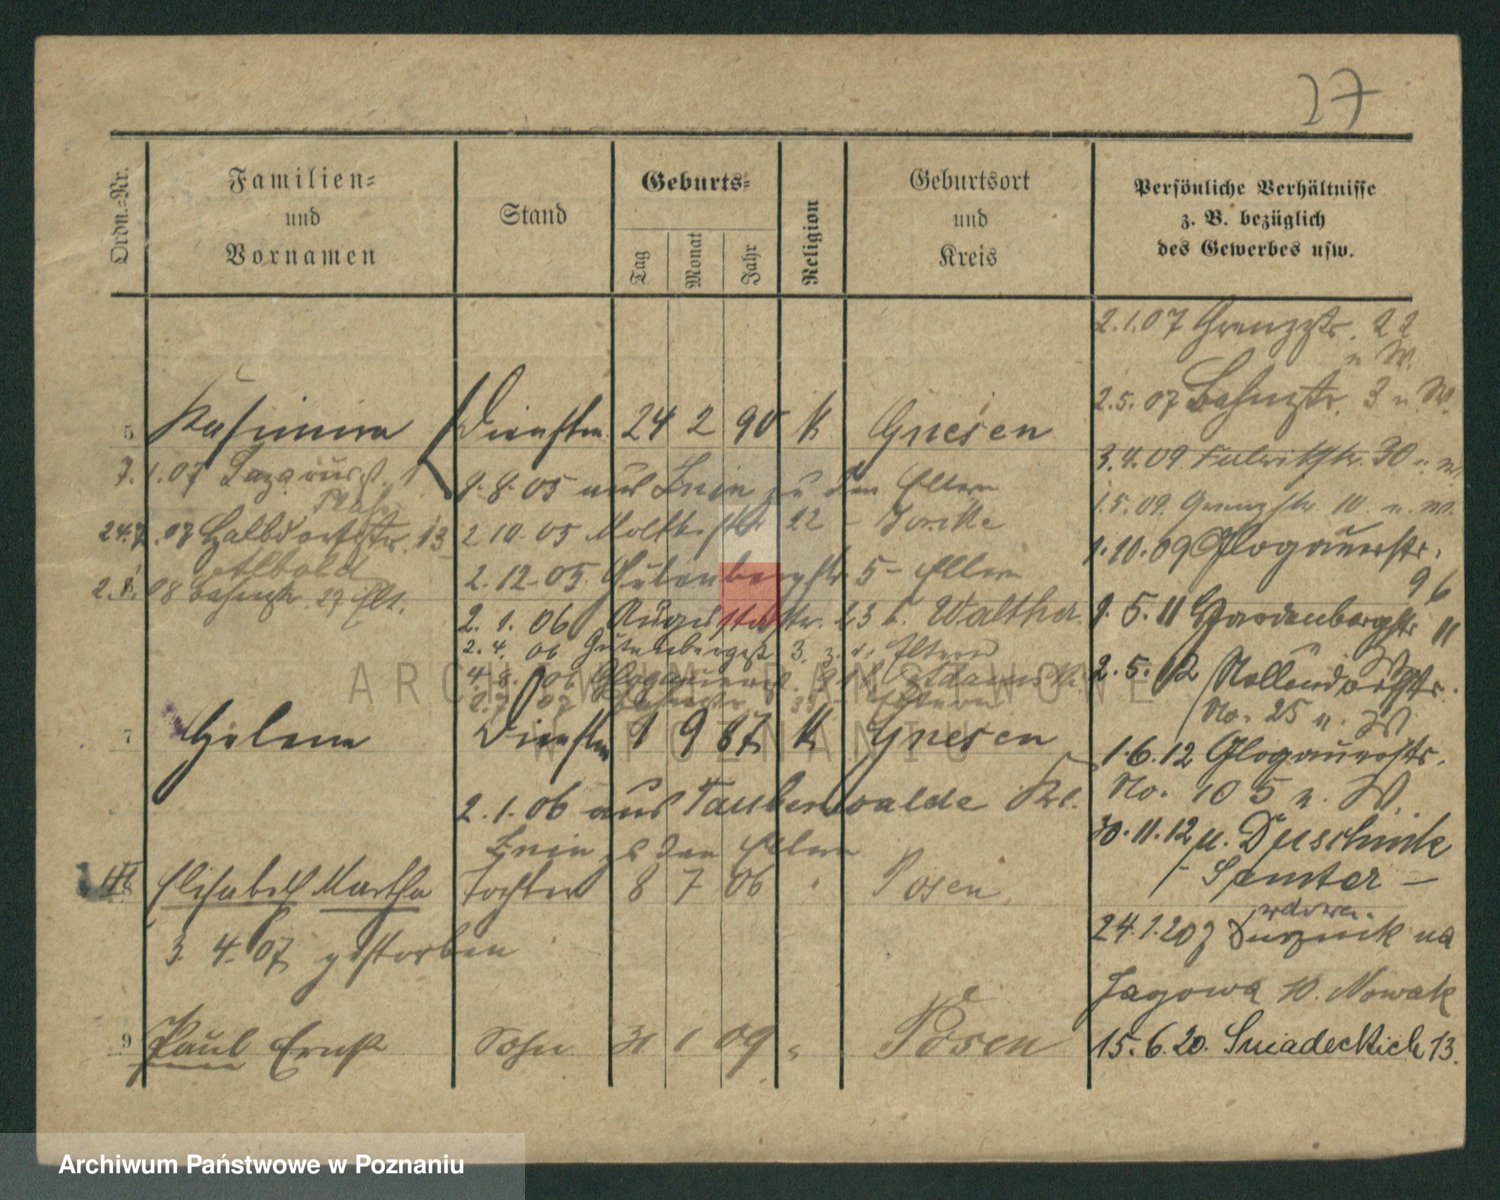 27
Ordn.-Nr.
Familien-
und
Vornamen
Stand
Geburts-
Tag
Monat
Jahr
Religion
Geburtsort
und
Kreis
Persönliche Verhältnisse
z. B. bezüglich
des Gewerbes usw.
Kasimira Dienstm. 24 2 90 k Gnesen
7.1.07 Lazarusst. 1
9.8.05 aus Znin zu den Eltern
24.7.07 Halbdorfstr. 13
2.10.05 Moltkestr 22
2.12.05 Gutenbergstr 5 - Eltern
08 Bahnstr. 27 Elt.
2.1.06 Augustastr. 23 b. Walther
2.4.06 Gutenbergst 3. z. d. Eltern
4.8.06 Glogauerst.
7 Helene Dienstm 1 9 87 k Gnesen
2.1.06 aus Taubenwalde Kr.
Znin zu den Eltern
Elisabeth Martha Tochter 8 7 06 " Posen
3.4.07 gestorben
9 Paul Ernst Sohn 31 1 09 " Posen
2.1.07 Grenzstr. 22
u W.
2.5.07 Bahnstr. 3 u. W.
3.4.09 30 u. W.
1.5.09 Grenzstr. 10 u. W.
1.10.09 Glogauerstr.
96
1.5.11 Hardenbergstr 11
2.5.12 Nollendorfstr.
No. 25 u. W.
1.6.12 Glogauerstr.
No. 105 u. W.
30.11.12 n. Duschnik
Samter -
wdowa.
24.1.20 z Dusznik na
Jagowa 10. Nowak
15.6.20. Sniadeckich 13.
ARCHIWUM PAŃSTWOWE
W POZNANIU
Archiwum Państwowe w Poznaniu